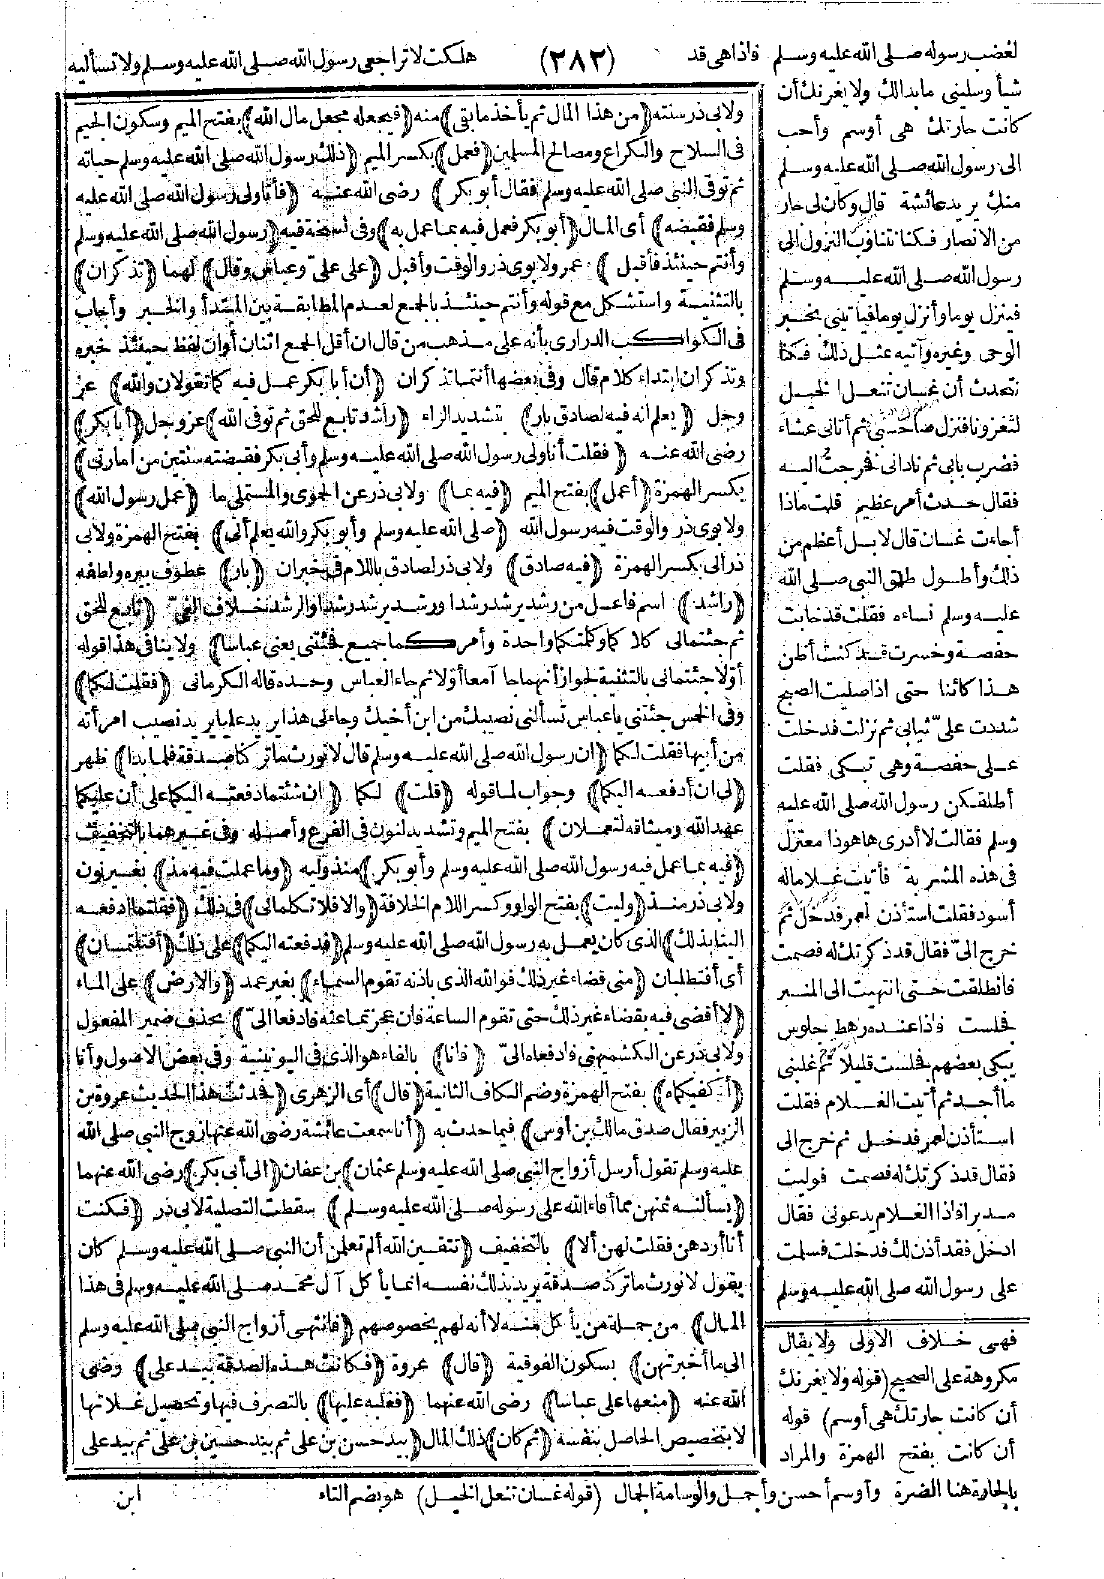 لغضب رسوله صلى الله عليه وسلم فاذا هى قد (٢٨٢) هلكت لا تراجعى رسول الله صلى الله عليه وسلم ولا تسأليه
شيأ وسلينى ما بدا لك ولا يغرنك أن
كانت جارتك هى أوسم وأحب
الى رسول الله صلى الله عليه وسلم
منك يريد عائشة قال وكان لى جار
من الانصار فكنا نتناوب النزول الى
رسول الله صلى الله عليه وسلم
فينزل يوما وأنزل يوما فيأتينى بخبر
الوحى وغيره وآتيه بمثل ذلك فكنا
نتحدث أن غسان تنعل الخيل
لتغزونا فنزل صاحبى ثم أتانى عشاء
فضرب بابى ثم نادانى فخرجت اليه
فقال حدث أمر عظيم قلت ماذا
أجاءت غسان قال لا بل أعظم من
ذلك وأطول طلق النبى صلى الله
عليه وسلم نساءه فقلت قد خابت
حفصة وخسرت قد كنت أظن
هذا كائنا حتى اذا صليت الصبح
شددت علىّ ثيابى ثم نزلت فدخلت
على حفصة وهى تبكى فقلت
أطلقكن رسول الله صلى الله عليه
وسلم فقالت لا أدرى ها هو ذا معتزل
فى هذه المشربة فأتيت غلاما له
أسود فقلت استأذن لعمر فدخل ثم
خرج الىّ فقال قد ذكرتك له فصمت
فانطلقت حتى انتهيت الى المنبر
فجلست فاذا عنده رهط جلوس
يبكى بعضهم فجلست قليلا ثم غلبنى
ما أجد ثم أتيت الغلام فقلت
استأذن لعمر فدخل ثم خرج الى
فقال قد ذكرتك له فصمت فوليت
مدبرا فاذا الغلام يدعونى فقال
ادخل فقد أذن لك فدخلت فسلمت
على رسول الله صلى الله عليه وسلم
فهى خلاف الاولى ولا يقال
مكروهة على الصحيح (قوله ولا يغرنك
أن كانت جارتك هى أوسم) قوله
أن كانت بفتح الهمزة والمراد
بالجارة هنا الضرة وأوسم أحسن وأجمل والوسامة الجمال (قوله غسان تنعل الخيل) هو بضم التاء
ولابى ذر سنته (من هذا المال ثم يأخذ ما بقى) منه (فيجعله مجعل مال الله) بفتح الميم وسكون الجيم
فى السلاح والكراع ومصالح المسلمين (فعمل) بكسر الميم (ذلك رسول الله صلى الله عليه وسلم حياته
ثم توفى النبى صلى الله عليه وسلم فقال أبو بكر) رضى الله عنه (فأنا ولى رسول الله صلى الله عليه
وسلم فقبضه) أى المال (أبو بكر فعمل فيه بما عمل به) وفى نسخة فيه (رسول الله صلى الله عليه وسلم
وأنتم حينئذ فأقبل) عمر ولابوى ذر والوقت وأقبل (على علىّ وعباس وقال) لهما (تذكران)
بالتثنية واستشكل مع قوله وأنتم حينئذ بالجمع لعدم المطابقة بين المبتدأ والخبر وأجاب
فى الكواكب الدرارى بأنه على مذهب من قال ان أقل الجمع اثنان أو ان لفظ حينئذ خبره
وتذكران ابتداء كلام قال وفى بعضها أنتما تذكران (أن أبا بكر عمل فيه كما تقولان والله) عز
وجل (يعلم انه فيه لصادق بار) بتشديد الراء (راشد تابع للحق ثم توفى الله) عز وجل (أبا بكر)
رضى الله عنه (فقلت أنا ولى رسول الله صلى الله عليه وسلم وأبى بكر فقبضته سنتين من امارتى)
بكسر الهمزة (أعمل) بفتح الميم (فيه بما) ولابى ذر عن الحموى والمستملى ما (عمل رسول الله)
ولابوى ذر والوقت فيه رسول الله (صلى الله عليه وسلم وأبو بكر والله يعلم أنى) بفتح الهمزة ولابى
ذر انى بكسر الهمزة (فيه صادق) ولابى ذر لصادق باللام فى خبر ان (بار) عطوف ببره ولطفه
(راشد) اسم فاعل من رشد يرشد رشدا ورشد يرشد رشدا والرشد خلاف الغىّ (تابع للحق
ثم جئتمانى كلاكما وكلمتكما واحدة وأمركما جميع فجئتنى يعنى عباسا) ولا ينافى هذا قوله
أوّلا جئتمانى بالتثنية لجواز أنهما جا آ معا أولا ثم جاء العباس وحده قاله الكرمانى (فقلت لكما)
وفى الخمس جئتنى يا عباس تسألنى نصيبك من ابن أخيك وجاءنى هذا يريد عليا يريد نصيب امرأته
من أبيها فقلت لكما (ان رسول الله صلى الله عليه وسلم قال لا نورث ما تركنا صدقة فلما بدا) ظهر
(لى ان أدفعه اليكما) وجواب لما قوله (قلت) لكما (ان شئتما دفعته اليكما على أن عليكما
عهد الله وميثاقه لتعملان) بفتح الميم وتشديد النون فى الفرع وأصله وفى غيرهما بالتخفيف
(فيه بما عمل فيه رسول الله صلى الله عليه وسلم وأبو بكر) منذ وليه (وما عملت فيه مذ) بغير نون
ولابى ذر منذ (وليت) بفتح الواو وكسر اللام الخلافة (والا فلا تكلمانى) فى ذلك (فقلتما ادفعه
الينا بذلك) الذى كان يعمل به رسول الله صلى الله عليه وسلم (فدفعته اليكما) على ذلك (أفتلتمسان)
أى أفتطلبان (منى قضاء غير ذلك فوالله الذى باذنه تقوم السماء) بغير عمد (والارض) على الماء
(لا أقضى فيه بقضاء غير ذلك حتى تقوم الساعة فان عجزتما عنه فادفعا الىّ) بحذف ضمير المفعول
ولابى ذر عن الكشميهنى فادفعاه الىّ (فانا) بالفاء هو الذى فى اليونينية وفى بعض الاصول وأنا
(أكفيكماه) بفتح الهمزة وضم الكاف الثانية (قال) أى الزهرى (فحدثت هذا الحديث عروة بن
الزبير فقال صدق مالك بن أوس) فيما حدث به (أنا سمعت عائشة رضى الله عنها زوج النبى صلى الله
عليه وسلم تقول أرسل أزواج النبى صلى الله عليه وسلم عثمان) بن عفان (الى أبى بكر) رضى الله عنهما
(يسألنه ثمنهن مما أفاء الله على رسوله صلى الله عليه وسلم) سقطت التصلية لابى ذر (فكنت
أنا أردهن فقلت لهن ألا) بالتخفيف (تتقين الله ألم تعلمن أن النبى صلى الله عليه وسلم كان
يقول لا نورث ما تركنا صدقة يريد بذلك نفسه انما يأكل آل محمد صلى الله عليه وسلم فى هذا
المال) من جملة من يأكل منه لا أنه لهم بخصوصهم (فانتهى أزواج النبى صلى الله عليه وسلم
الى ما أخبرتهن) بسكون الفوقية (قال) عروة (فكانت هذه الصدقة بيد على) رضى
الله عنه (منعها على عباسا) رضى الله عنهما (فغلبه عليها) بالتصرف فيها وتحصيل غلاتها
لا بتخصيص الحاصل بنفسه (ثم كان) ذلك المال (بيد حسن بن على ثم بيد حسين بن على ثم بيد على
ابن